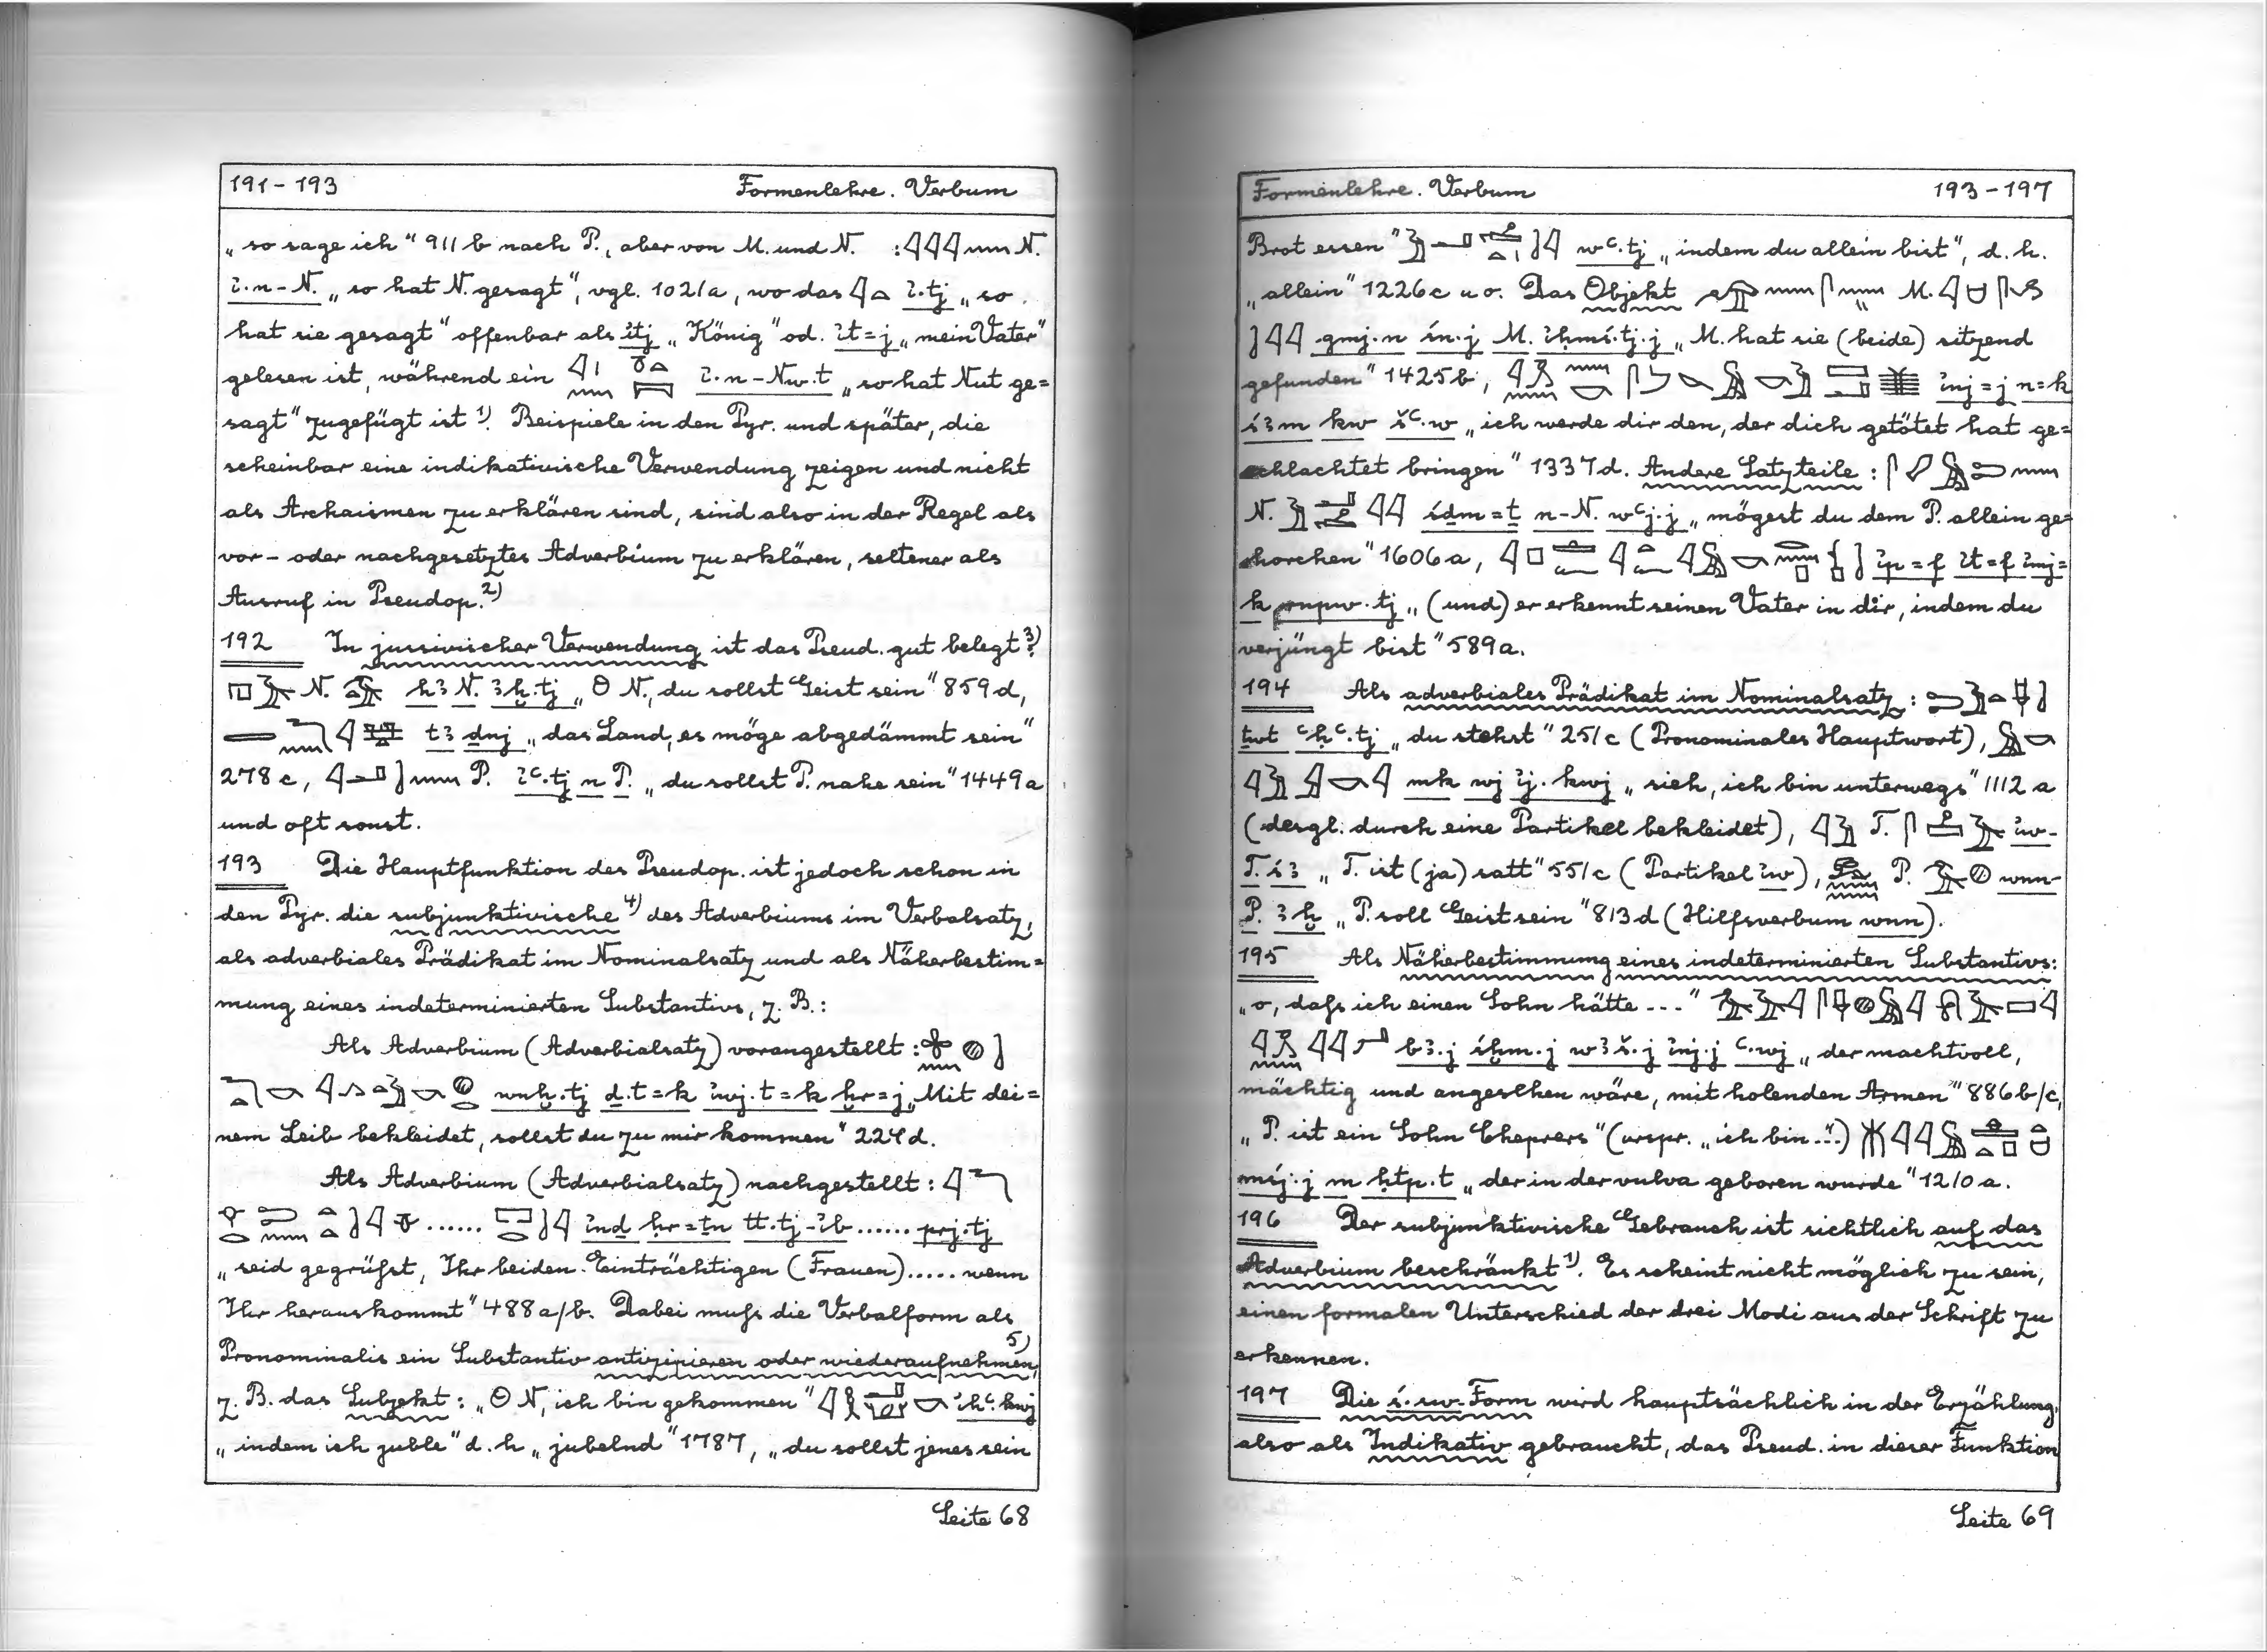 191-193 Formenlehre. Verbum
„so sage ich" 911b nach P., aber von M. und N. : 𓇋𓇋𓇋𓈖 N.
ỉ.n-N. „so hat N. gesagt", vgl. 1021a, wo das 𓇋𓏏 ỉ.tj „so
hat sie gesagt" offenbar als ỉtj „König" od. ỉt=j „mein Vater"
gelesen ist, während ein ỉ.n-Nw.t „so hat Nut ge=
sagt" zugefügt ist 1). Beispiele in den Pyr. und später, die
scheinbar eine indikativische Verwendung zeigen und nicht
als Archaismen zu erklären sind, sind also in der Regel als
vor- oder nachgesetztes Adverbium zu erklären, seltener als
Ausruf in Pseudop. 2)
192 In jussivischer Verwendung ist das Pseud. gut belegt 3)
N. hꜣ N. ꜣḫ.tj „O N., du sollst Geist sein" 859d,
tꜣ dnj „das Land, es möge abgedämmt sein"
278c, P. ỉꜥ.tj n P. „du sollst P. nahe sein" 1449a
und oft sonst.
193 Die Hauptfunktion des Pseudop. ist jedoch schon in
den Pyr. die subjunktivische 4) des Adverbiums im Verbalsatz,
als adverbiales Prädikat im Nominalsatz und als Näherbestim=
mung eines indeterminierten Substantivs, z. B.:
Als Adverbium (Adverbialsatz) vorangestellt :
wnḫ.tj ḏ.t=k ỉwj.t=k ḫr=j „Mit dei=
nem Leib bekleidet, sollst du zu mir kommen" 224d.
Als Adverbium (Adverbialsatz) nachgestellt :
...... ỉnḏ ḥr=ṯn tt.tj-ỉb ...... prj.tj
„seid gegrüßt, Ihr beiden Einträchtigen (Frauen)..... wenn
Ihr herauskommt" 488a/b. Dabei muß die Verbalform als
Pronominalis ein Substantiv antizipieren oder wiederaufnehmen, 5)
z. B. das Subjekt : „O N, ich bin gekommen" ỉhꜥ.kwj
„indem ich juble" d. h „jubelnd" 1787, „du sollst jenes sein
Seite 68
Formenlehre. Verbum 193-197
Brot essen" wꜥ.tj „indem du allein bist", d. h.
„allein" 1226c u. o. Das Objekt M.
gmj.n śn.j M. ỉḥmś.tj.j „M. hat sie (beide) sitzend
gefunden" 1425b, ỉnj=j n=k
śꜣm kw šꜥ.w „ich werde dir den, der dich getötet hat ge=
schlachtet bringen" 1337d. Andere Satzteile :
N. śḏm=ṯ n-N. wꜥj.j „mögest du dem P. allein ge=
horchen" 1606a, ỉp=f ỉt=f ỉmj=
k rnpw.tj „(und) er erkennt seinen Vater in dir, indem du
verjüngt bist" 589a.
194 Als adverbiales Prädikat im Nominalsatz :
ṯwt ꜥḥꜥ.tj „du stehst" 251c (Pronominales Hauptwort),
mk wj ỉj.kwj „sieh, ich bin unterwegs" 1112a
(desgl. durch eine Partikel bekleidet), T. ỉw-
T. śꜣ „T. ist (ja) satt" 551c (Partikel ỉw), P. wnn-
P. ꜣḫ „P. soll Geist sein" 813d (Hilfsverbum wnn).
195 Als Näherbestimmung eines indeterminierten Substantivs:
„o, daß ich einen Sohn hätte ---"
bꜣ.j śḫm.j wꜣš.j ỉnj.j ꜥ.wj „der machtvoll,
mächtig und angesehen wäre, mit holenden Armen" 886b/c,
„P. ist ein Sohn Cheprers" (urspr. „ich bin ..")
mśj.j m ḥtp.t „der in der vulva geboren wurde" 1210a.
196 Der subjunktivische Gebrauch ist sichtlich auf das
Adverbium beschränkt 1). Es scheint nicht möglich zu sein,
einen formalen Unterschied der drei Modi aus der Schrift zu
erkennen.
197 Die ś.sw-Form wird hauptsächlich in der Erzählung,
also als Indikativ gebraucht, das Pseud. in dieser Funktion
Seite 69